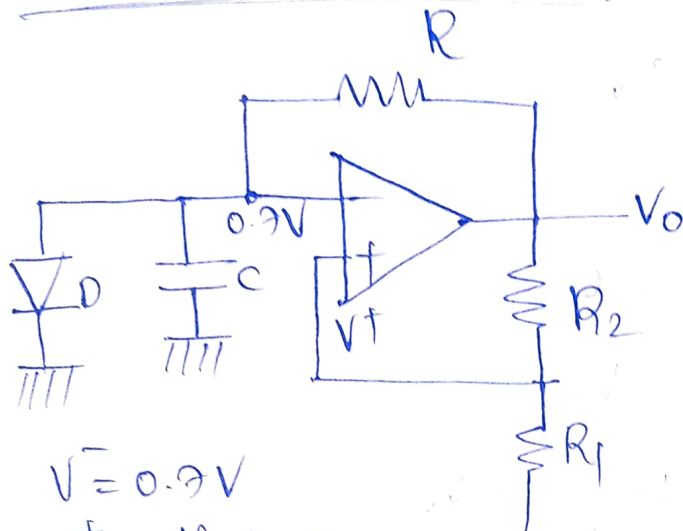 R
0.7V
-
+
V+
Vo
D
C
R2
R1
V- = 0.7V